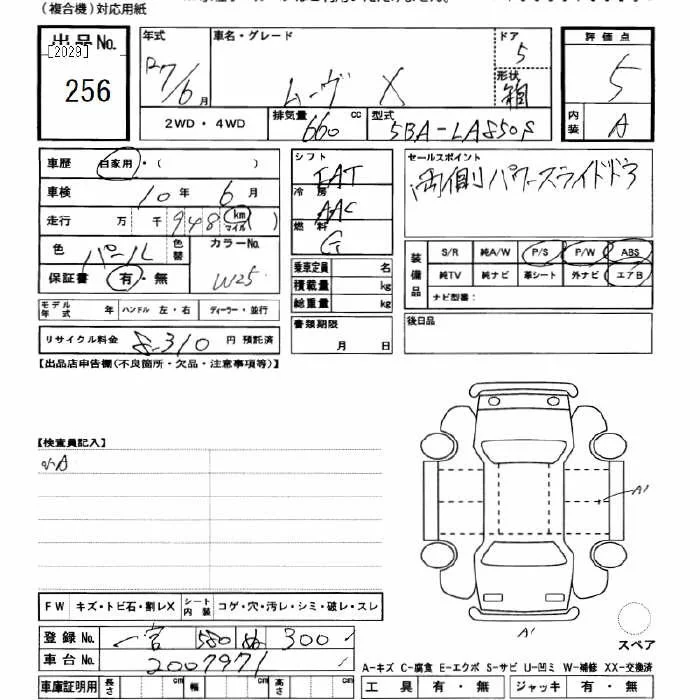 (複合機)対応用紙
出品No.
[2029]
256
年式
R7/6月
車名・グレード
ムーヴ X
ドア
5
形状
箱
評価点
5
内装
A
2WD・4WD
排気量
660 cc
型式
5BA-LA850S
車歴 自家用・( )
車検 10年 6月
走行 万 千 948 km マイル ( )
色 パール 色替
カラーNo.
W25
保証書 有・無
モデル年式 年 ハンドル 左・右 ディーラー・並行
リサイクル料金 8,310 円 預託済
シフト
FAT
冷房
AAC
燃料
G
乗車定員 名
積載量 kg
総重量 kg
書類期限
月 日
セールスポイント
両側パワースライドドア
装備品
S/R 純A/W P/S P/W ABS
純TV 純ナビ 革シート 外ナビ エアB
ナビ型番:
後日品
【出品店申告欄(不良箇所・欠品・注意事項等)】
【検査員記入】
小A
A1
A1
スペア
FW キズ・トビ石・割レX シート内装 コゲ・穴・汚レ・シミ・破レ・スレ
登録No. 一宮 580 ぬ 300
車台No. 2007971
車庫証明用 長さ cm 幅 cm 高さ cm
A-キズ C-腐食 E-エクボ S-サビ U-凹ミ W-補修 XX-交換済
工具 有・無 ジャッキ 有・無